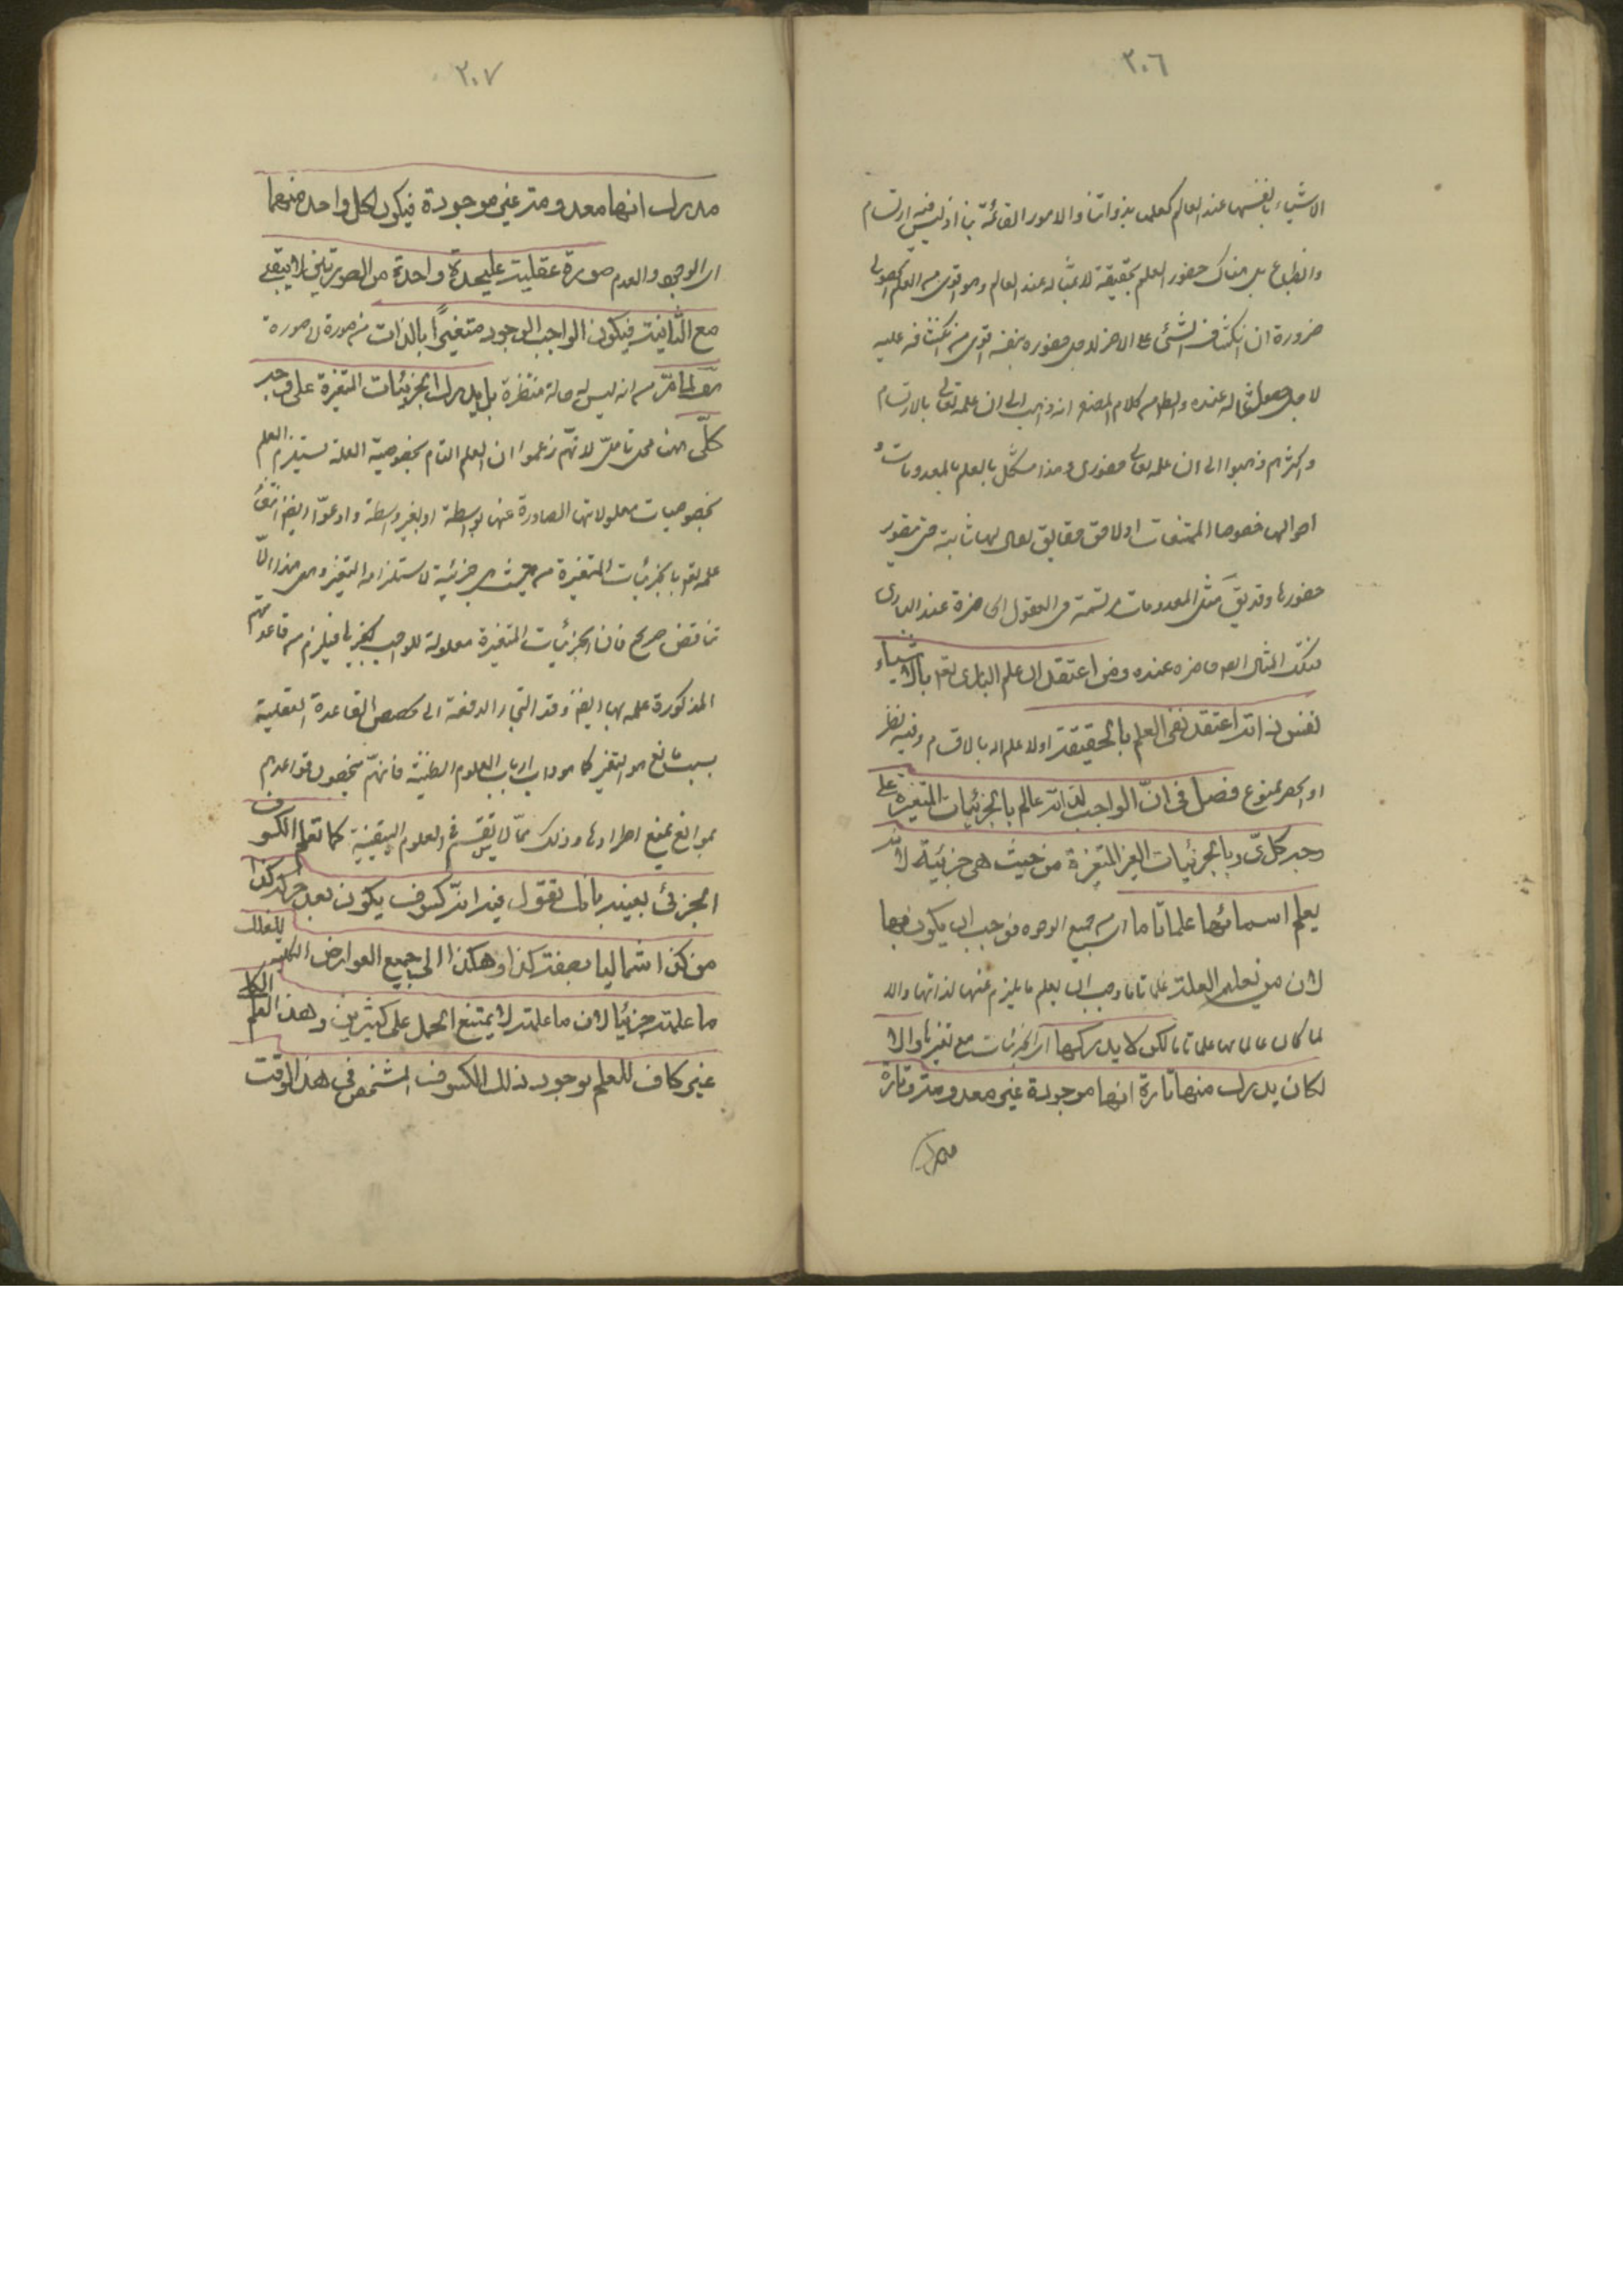 ٣٠٦
الاشياء بانفسها عند العالم كعلمنا بذواتنا والامور القائمة بنا اذ ليس فيه ارتسام
وانطباع بل هناك حضور العلم بحقيقته لا بمثاله عند العالم وهو اقوى من العلم الحصولى
ضرورة ان انكشاف الشئ على الاخر لاجل حضوره بنفسه اقوى من انكشافه عليه
لاجل حصول مثاله عنده والظ من كلام المصنف انه ذهب الى ان علمه تعالى بالارتسام
واكثرهم ذهبوا الى ان علمه تعالى حضورى وهذا مشكل بالعلم بالمعدومات و
احوالها خصوصا الممتنعات اذ لا حقايق لها ثابتة حتى يتصور
حضورها وقد يق مثل المعدومات مرتسمة فى العقول الحاضرة عند البارى
فتلك المثال ايضا حاضره عنده ومن اعتقد ان علم البارى تعه بالاشياء
نفس ذاته اعتقد نفى العلم بالحقيقة اولا علم الا بالاقسام وفيه نظر
اذ الحصر ممنوع فصل فى انّ الواجب لذاته عالم بالجزئيات المتغيرة على
وجه كلىّ وبالجزئيات الغير المتغيرة من حيث هى جزئية لانّه
يعلم اسبابها علما تاما اى من جميع الوجوه فوجب ان يكون عالما بها
لان من يعلم العلة علما تاما وجب ان يعلم ما يلزم عنها لذاتها والا
لما كان عالما بها علما تاما لكن لا يدركها اى الجزئيات مع تغيرها والا
لكان يدرك منها تارة انها موجودة غير معدومة وتارة
يدرك
٣٠٧
يدرك انها معدومة غير موجودة فيكون لكل واحد منهما
اى الوجود والعدم صورة عقلية عليحدة واحدة من الصورتين لا يبقى
مع الثانية فيكون الواجب الوجود متغيرًا بالذات من صورة الى صورة
هف لما مرّ من انه ليس له حالة منتظرة بل يدرك الجزئيات المتغيرة على وجه
كلّى ههنا محل تامل لانّهم زعموا ان العلم التام بخصوصية العلة يستلزم العلم
بخصوصيات معلولاتها الصادرة عنها بواسطة او بغير واسطة وادعوّا ايضا انتفاء
علمه تعه بالجزئيات المتغيرة من حيث هى جزئية لاستلزامه التغير وهل هذا الّا
تناقض صريح فان الجزئيات المتغيرة معلولة للواجب كغيرها فيلزم من قاعدتهم
المذكورة علمه بها ايضا وقد التجاوا لدفعه الى تخصيص القاعدة العقلية
بسبب مانع هو التغير كما هو داب ارباب العلوم الظنية فانهّم يخصصون قواعدهم
بموانع تمنع اطرادها وذلك ممّا لا يستقيم فى العلوم اليقينية كما تعلم الكسوف
الجزئى بعينه بانك تقول فيه انّه كسوف يكون بعد حركة كذا
من كذا شماليا بصفة كذا وهكذا الى جميع العوارض الكلية لكنك
ما علمته جزئيا لان ما علمته لا يمتنع الحمل على كثيرين وهذا العلم الكلى
غير كاف للعلم بوجود ذلك الكسوف المشخص فى هذا الوقت